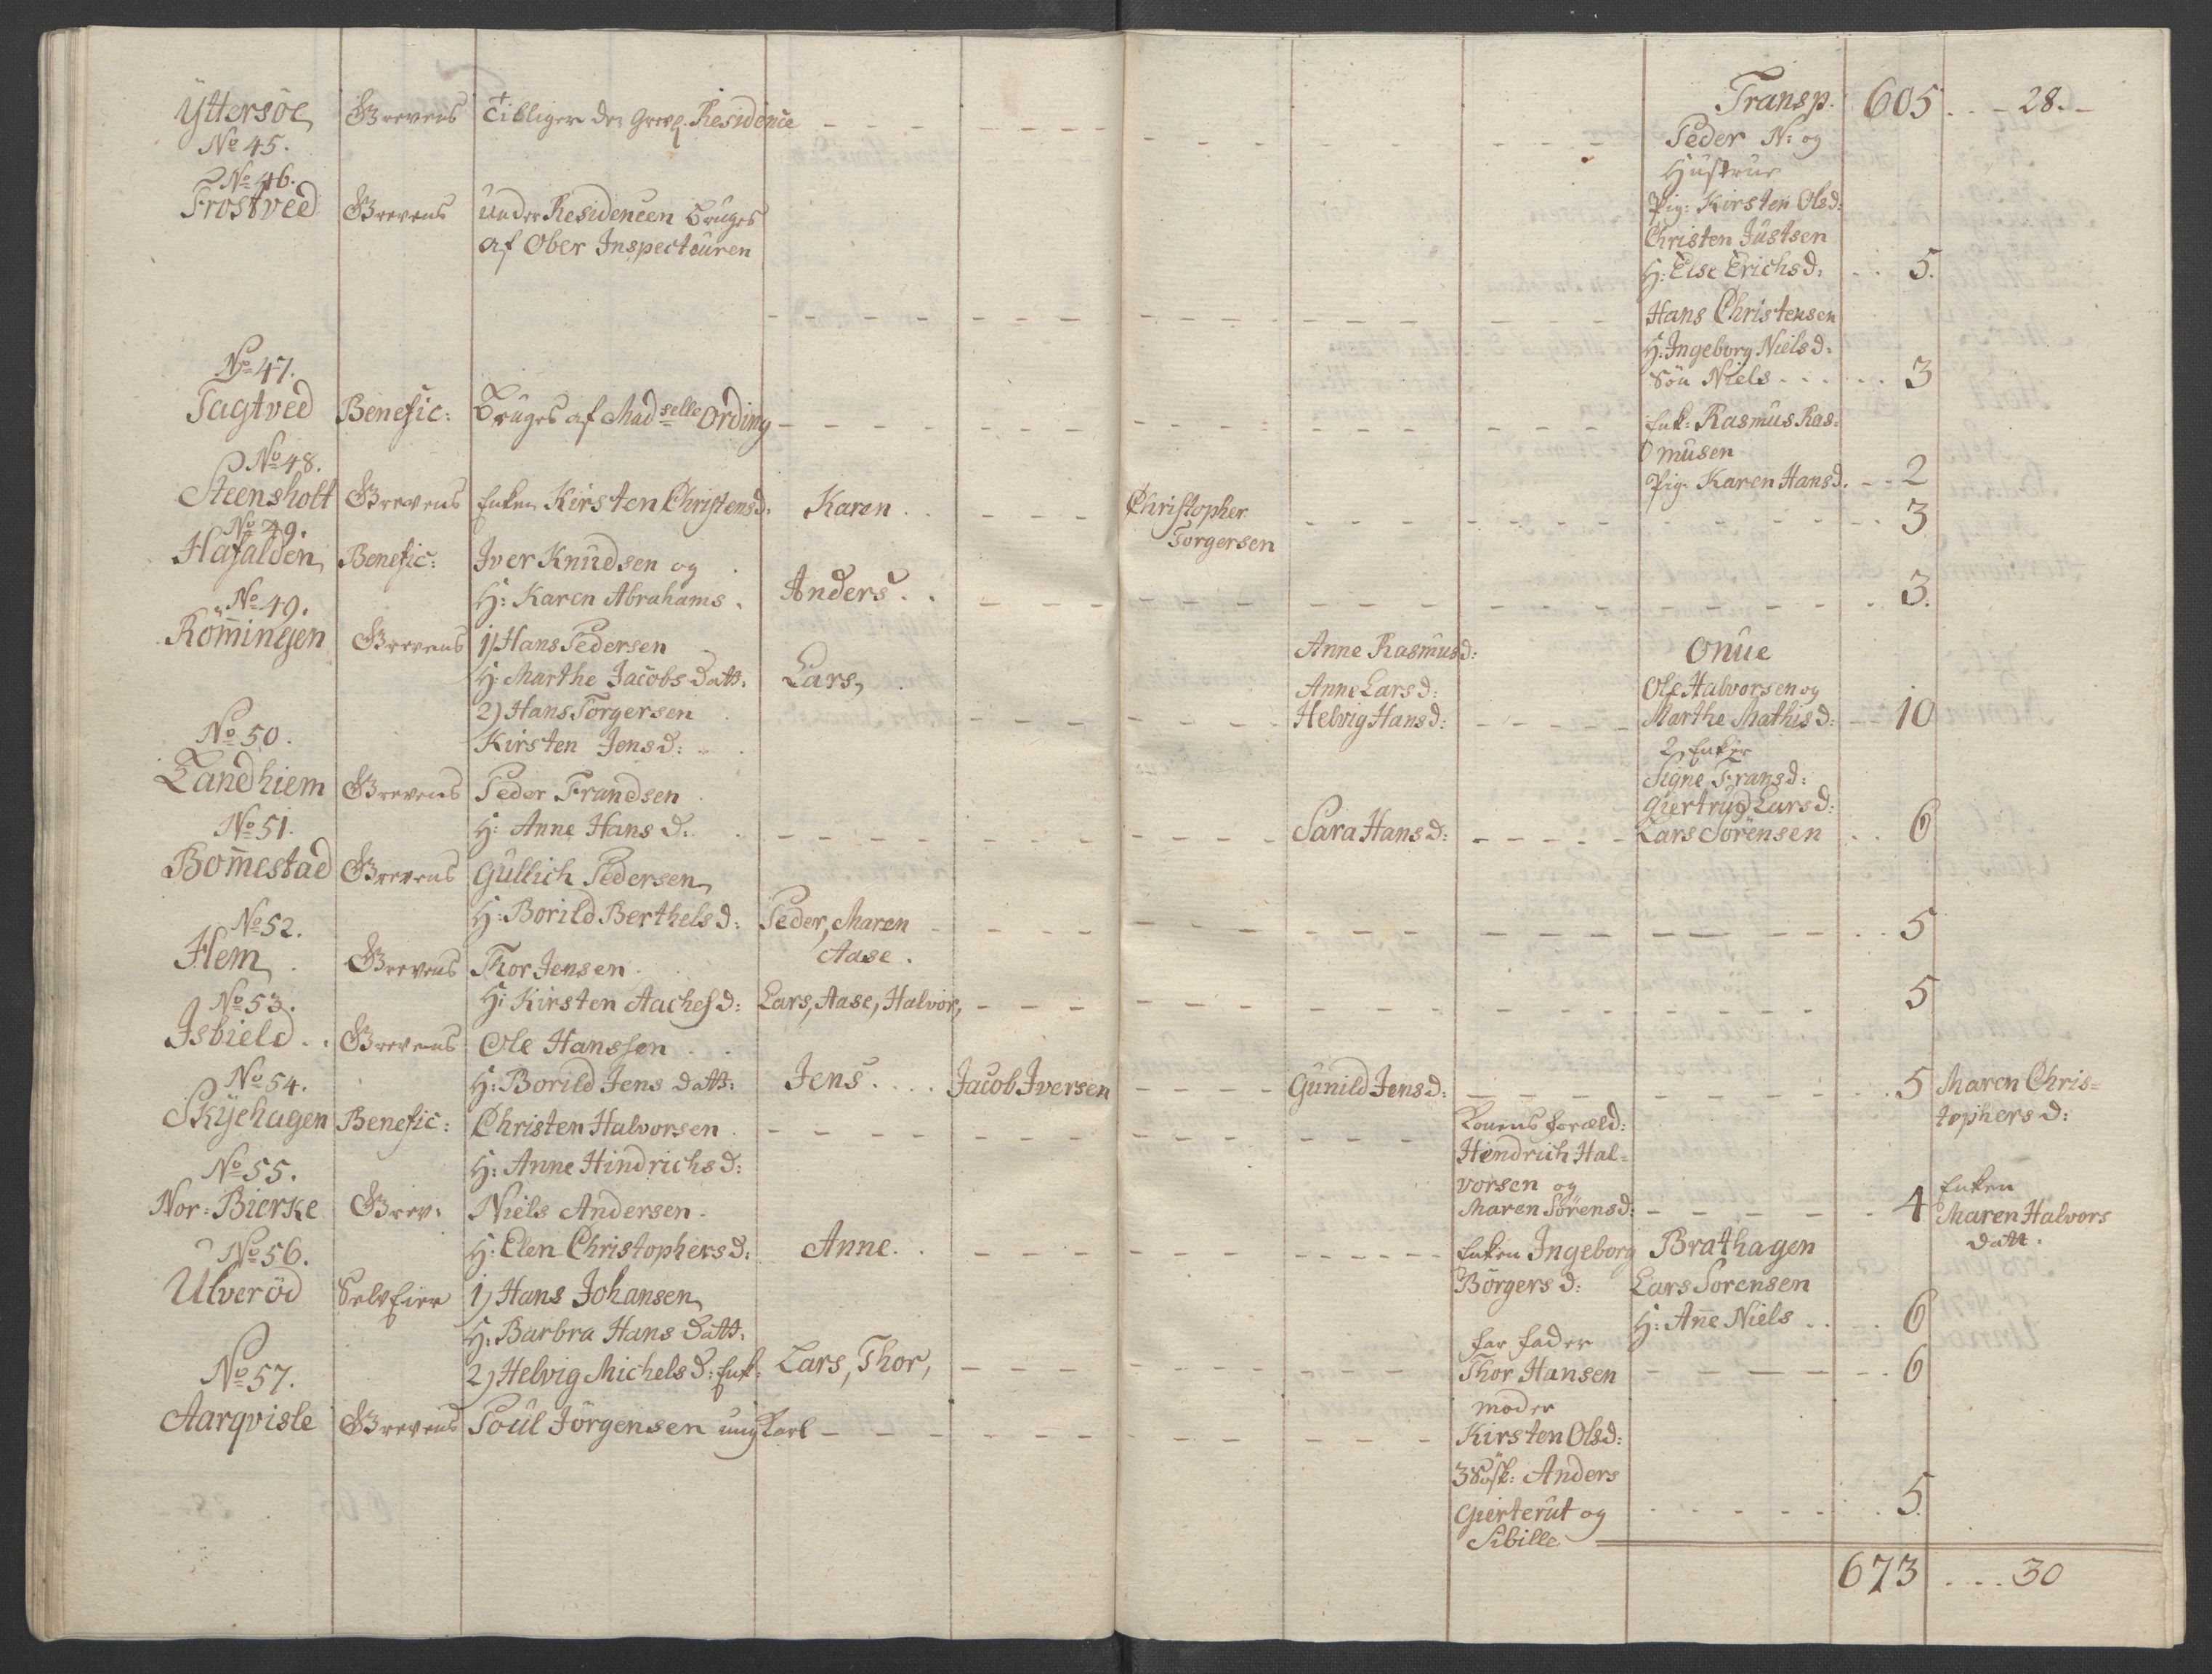 Transp. 605 . . - 28. -
Yttersöe Grevens tilliger den Grevl. Residence - - - - Peder N: og
No 45. Hustrue
No 46. Pig: Kirsten Olsd:
Frostved Grevens under Residencen bruges Christen Justsen
af Ober Inspecteuren H: Else Erichsd: . . 5.
Hans Christensen
No 47. H: Ingeborg Nielsd:
Søn Niels . . . . 3
Tagtved Benefic: bruges af Madselle Ording - - - - Enk: Rasmus Ras-
No 48. musen
Pig: Karen Hansd. - - 2
Steensholt Grevens Enken Kirsten Christensd: Karen . . - - - Christopher - - - - 3
No 49. Torgersen
Hafalden Benefic: Iver Knudsen og
H: Karen Abrahams . Anders . . - - - - . 3.
No 49.
Römingen Grevens 1) Hans Pedersen Anne Rasmusd: Onue
H: Marthe Jacobs datt. Lars, Anne Larsd: Ole Halvorsen og
2) Hans Torgersen - - - - Helvig Hansd: - - - - Marthe Mathisd: - - 10
No 50. Kirsten Jensd: 2 Enker
Signe Fransd:
Tandhiem Grevens Peder Frandsen Giertrud Larsd:
No 51. H: Anne Hansd: - - - - Sara Hansd: - - - - Lars Sörensen . . 6
Bomestad Grevens Gullich Pedersen
H: Borild Berthelsd: Peder, Maren - - - - . . 5
No 52. Aase .
Hem Grevens Thor Jensen
No 53. H: Kirsten Aachesd: Lars, Aase, Halvor, - - - - 5
Isbield . . Grevens Ole Hanssen . .
No 54. H: Borild Jens datt: Jens . . . . Jacob Iversen - - - - Gunild Jensd: - - - - . 5 Maren Chris-
Skÿehagen Benefic: Christen Halvorsen - - - - Konens foræld: tophersd:
No 55. H: Anne Hindrichsd: Hendrich Hal-
Nor: Bierke Grev: Niels Andersen vorsen og Enken
Maren Sörensd: - - - - 4 Maren Halvors
No 56. H: Elen Christophersd: Anne . . - - - - Enken Ingeborg Brathagen datt.
Ulveröd Selv Eier 1) Hans Johansen Börgersd: Lars Sorensen
H: Barbra Hans datt. H: Anne Niels . . . 6
No 57. Far fader
2) Helvig Michelsd: Enk: Lars, Thor, - - - - Thor Hansen - - - - 6
Aarqvisle Grevens Poul Jörgensen ung Karl - - - - moder
Kirsten Olsd:
3 Søsk: Anders
Gierterut og . . . . 5.
Sibille
673 . . . . 30